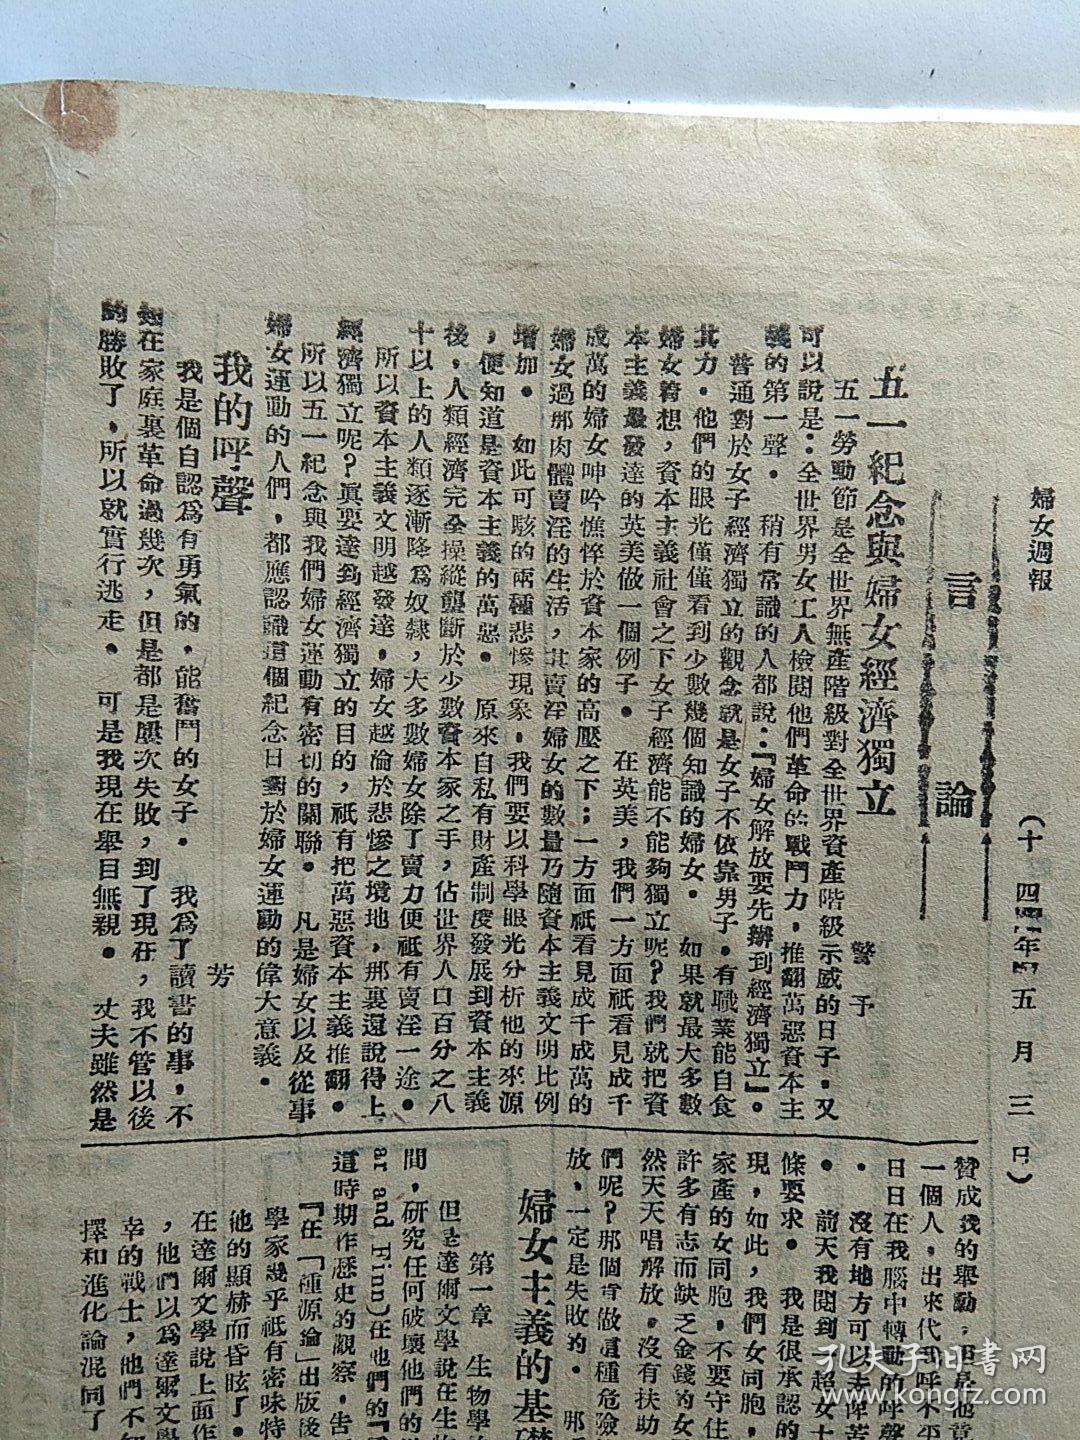 婦女週報
(十四年五月三日)
言論
五一紀念與婦女經濟獨立
警予
五一勞動節是全世界無產階級對全世界資產階級示威的日子。又
可以說是：全世界男女工人檢閱他們革命的戰鬥力，推翻萬惡資本主
義的第一聲。稍有常識的人都說：『婦女解放要先辦到經濟獨立』。
普通對於女子經濟獨立的觀念就是女子不依靠男子。有職業能自食
其力。他們的眼光僅僅看到少數幾個知識的婦女。如果就最大多數
婦女着想，資本主義社會之下女子經濟能不能夠獨立呢？我們就把資
本主義最發達的英美做一個例子。在英美，我們一方面祇看見成千
成萬的婦女呻吟憔悴於資本家的高壓之下；一方面祇看見成千成萬的
婦女過那肉體賣淫的生活，其賣淫婦女的數量乃隨資本主義文明比例
增加。如此可駭的兩種悲慘現象，我們要以科學眼光分析他的來源
，便知道是資本主義的萬惡。原來自私有財產制度發展到資本主義
後，人類經濟完全操縱壟斷於少數資本家之手，佔世界人口百分之八
十以上的人類逐漸降爲奴隸，大多數婦女除了賣力便祇有賣淫一途。
所以資本主義文明越發達，婦女越淪於悲慘之境地，那裏還說得上
經濟獨立呢？眞要達到經濟獨立的目的，祇有把萬惡資本主義推翻。
所以五一紀念與我們婦女運動有密切的關聯。凡是婦女以及從事
婦女運動的人們，都應認識這個紀念日對於婦女運動的偉大意義。
我的呼聲
芳
我是個自認爲有勇氣的，能奮鬥的女子。我爲了讀書的事，不
知在家庭裏革命過幾次，但是都是屢次失敗，到了現在，我不管以後
的勝敗了，所以就實行逃走。可是我現在舉目無親。丈夫雖然是
贊成我的舉動，
一個人，出來代我呼不平
日日在我腦中轉動的呼聲
。沒有地方可以去
。前天我閱到
條要求。我是很承認的
現，如此，我們女同胞
家產的女同胞，不要守住
許多有志而缺乏金錢的女
然天天唱解放。沒有扶助
們呢？那個肯做這種危險
放，一定是失敗的。
婦女主義的基礎
第一章　生物學的
但是達爾文學說在生物
間，研究任何破壞他們的
ar and Finn)在他們的『
這時期作歷史的觀察，告
『在「種源論」出版後
學家幾乎祇有密味特
他的顯赫而昏眩了。
在達爾文學說上面作
，他們以爲達爾文學
幸的戰士，他們不
擇和進化論混同了
孔夫子旧書网
www.kongfz.com